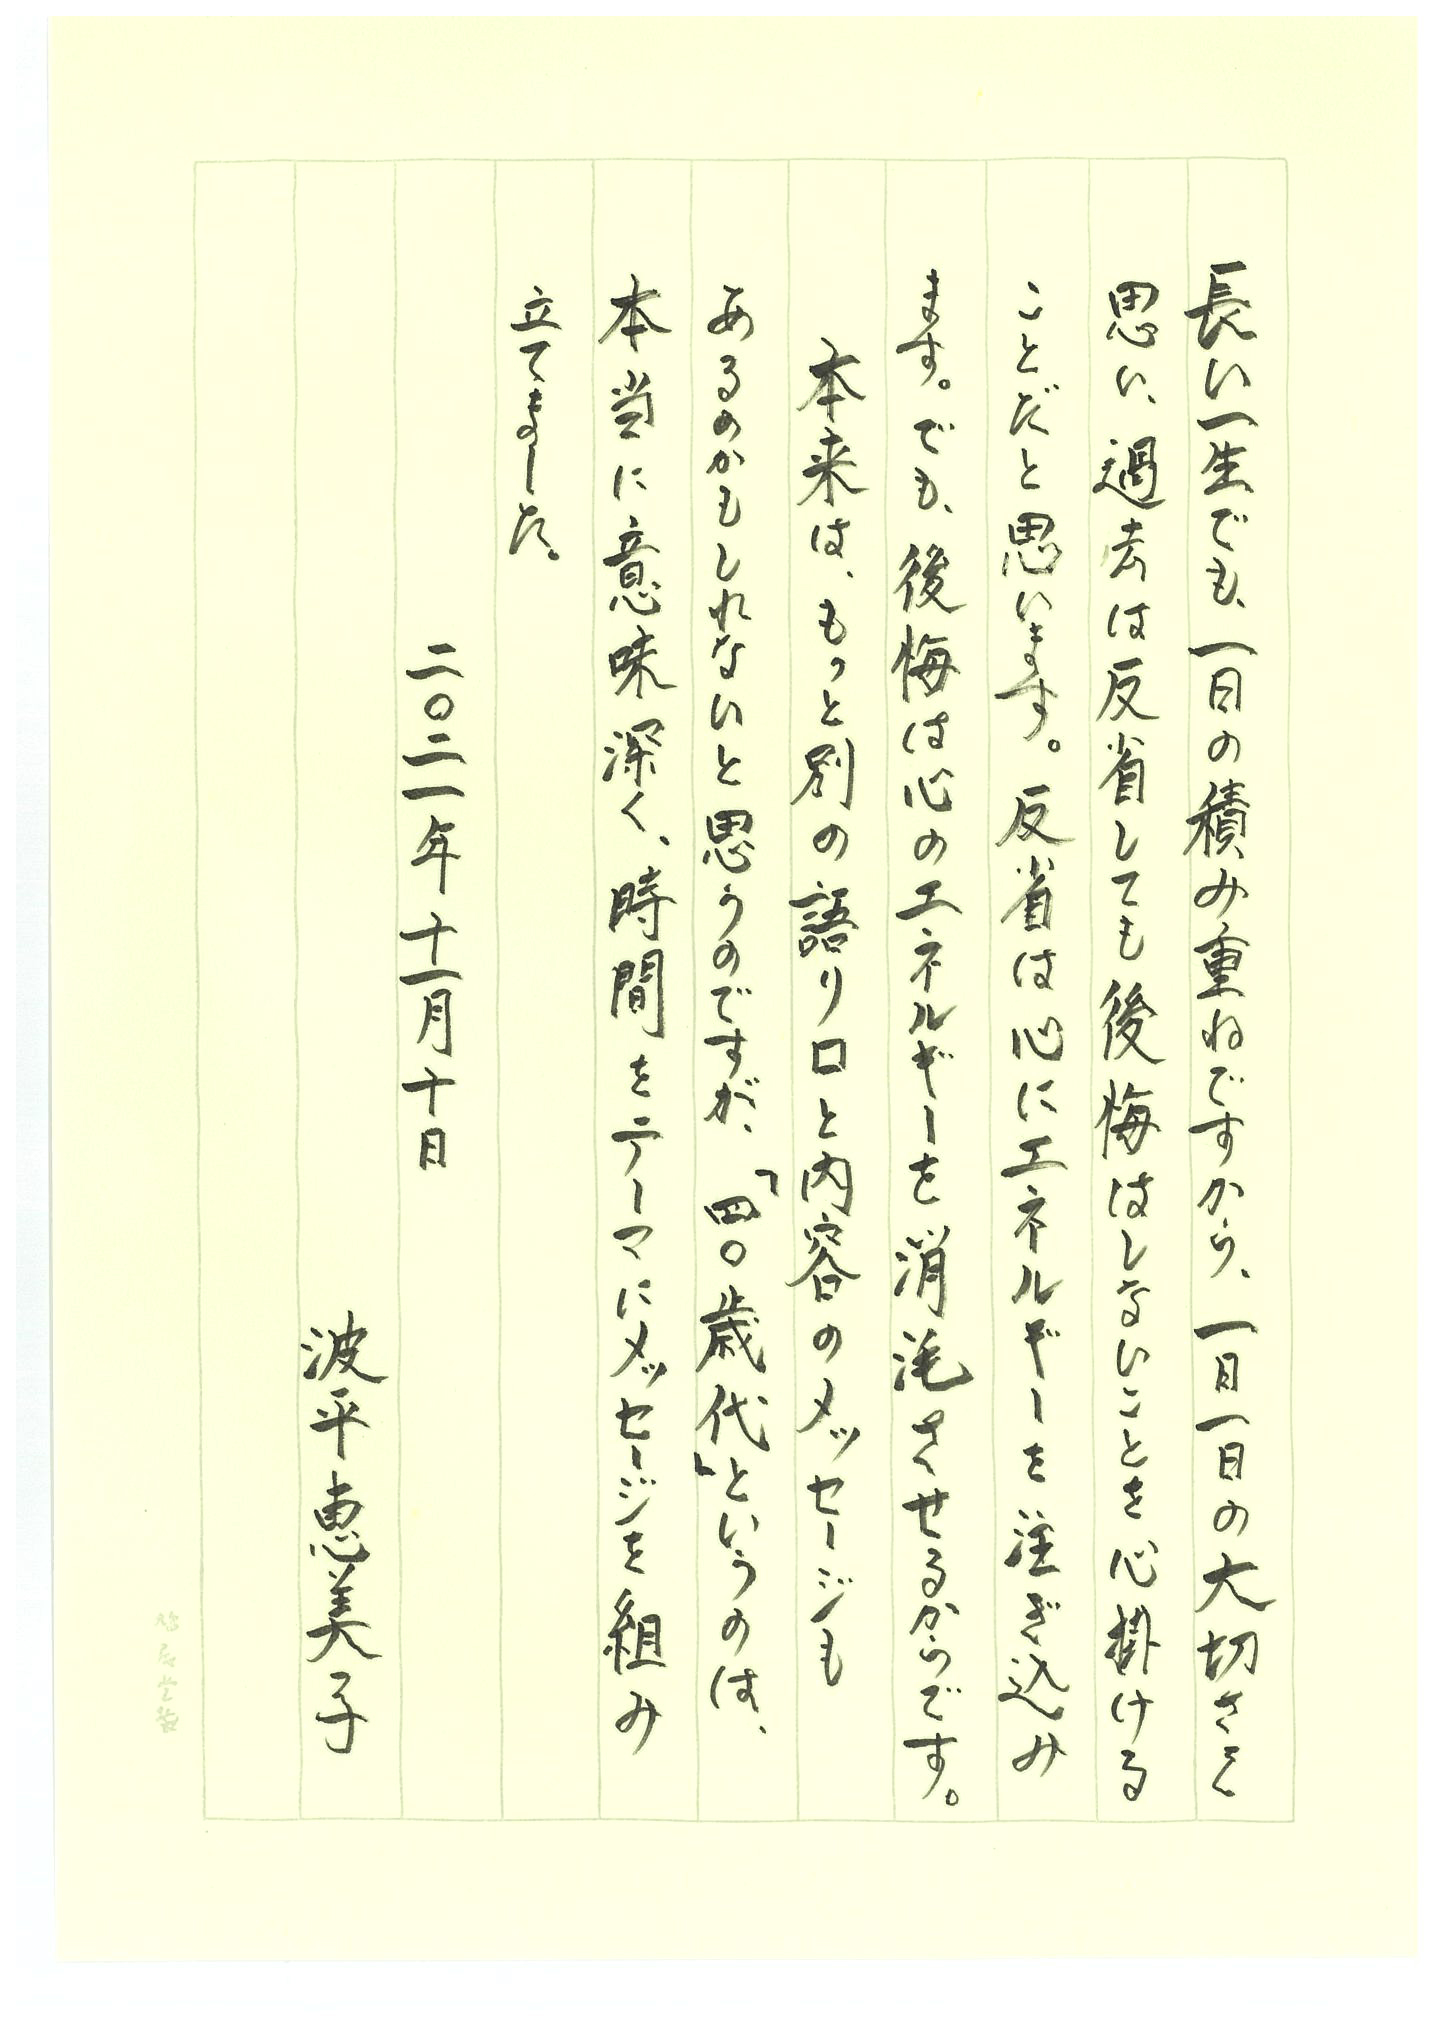 長い一生でも、一日の積み重ねですから、一日一日の大切さを
思い、過去は反省しても後悔はしないことを心掛ける
ことだと思います。反省は心にエネルギーを注ぎ込み
ます。でも、後悔は心のエネルギーを消耗させるからです。
本来は、もっと別の語り口と内容のメッセージも
あるのかもしれないと思うのですが、「四〇歳代」というのは、
本当に意味深く、時間をテーマにメッセージを組み
立てました。
二〇二一年十一月十日
波平恵美子